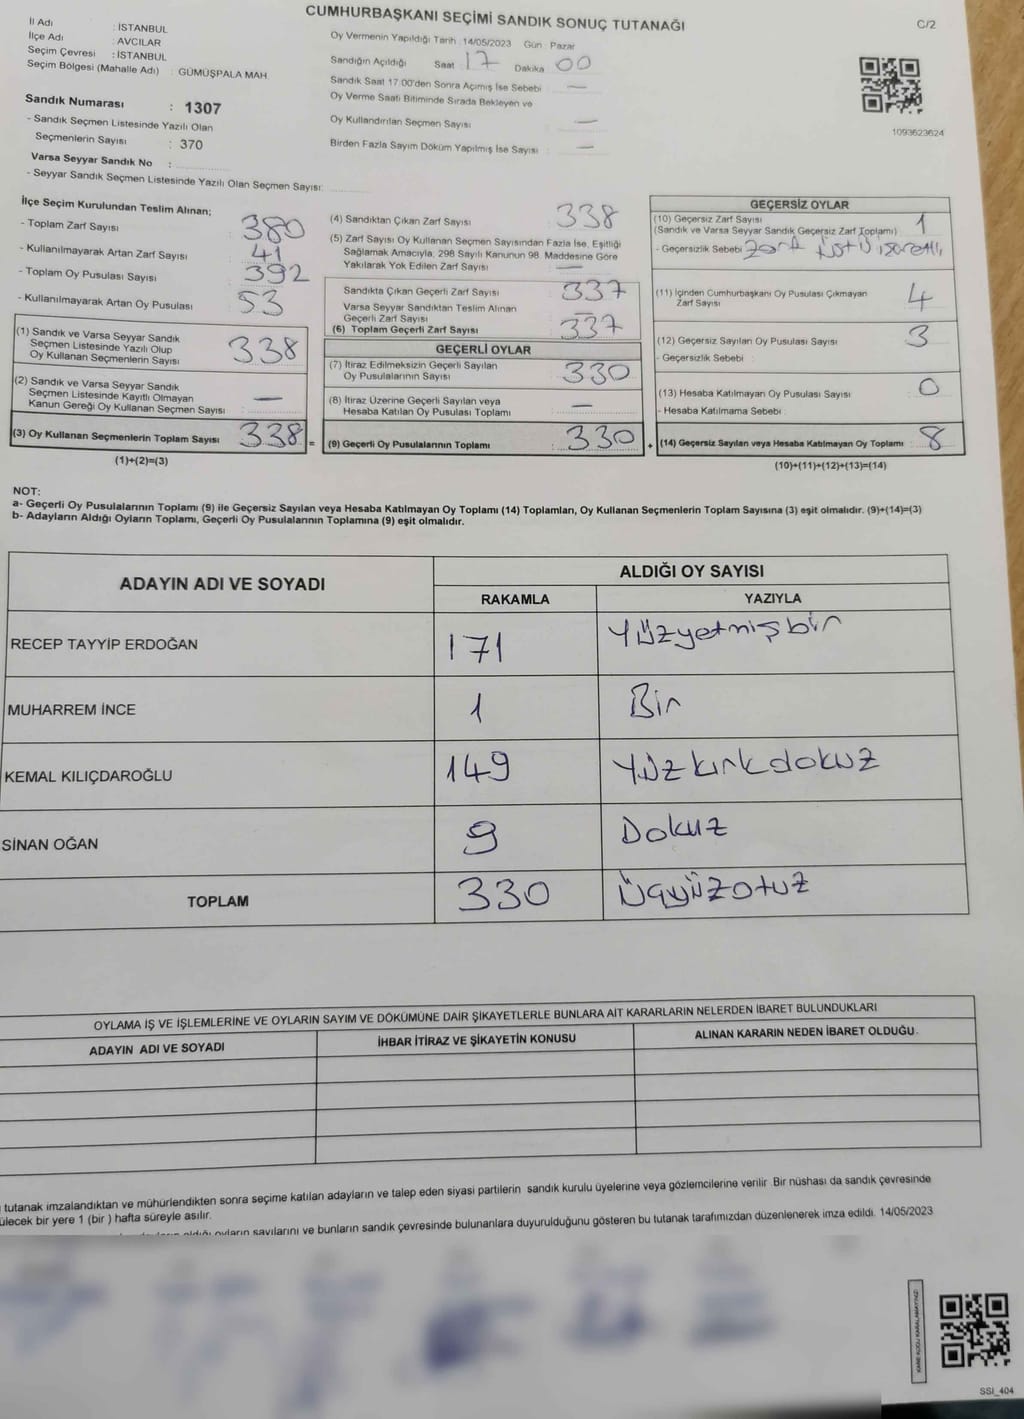 CUMHURBAŞKANI SEÇİMİ SANDIK SONUÇ TUTANAĞI
C/2
İl Adı : İSTANBUL
İlçe Adı : AVCILAR
Seçim Çevresi : İSTANBUL
Seçim Bölgesi (Mahalle Adı) : GÜMÜŞPALA MAH.
Sandık Numarası : 1307
- Sandık Seçmen Listesinde Yazılı Olan
Seçmenlerin Sayısı : 370
Varsa Seyyar Sandık No :
- Seyyar Sandık Seçmen Listesinde Yazılı Olan Seçmen Sayısı:
Oy Vermenin Yapıldığı Tarih : 14/05/2023 Gün : Pazar
Sandığın Açıldığı Saat 17 Dakika 00
Sandık Saat 17.00'den Sonra Açımış İse Sebebi —
Oy Verme Saati Bitiminde Sırada Bekleyen ve
Oy Kullandırılan Seçmen Sayısı —
Birden Fazla Sayım Döküm Yapılmış İse Sayısı : —
1093623624
İlçe Seçim Kurulundan Teslim Alınan;
- Toplam Zarf Sayısı 380
- Kullanılmayarak Artan Zarf Sayısı 41
- Toplam Oy Pusulası Sayısı 392
- Kullanılmayarak Artan Oy Pusulası 53
(1) Sandık ve Varsa Seyyar Sandık
Seçmen Listesinde Yazılı Olup
Oy Kullanan Seçmenlerin Sayısı 338
(2) Sandık ve Varsa Seyyar Sandık
Seçmen Listesinde Kayıtlı Olmayan
Kanun Gereği Oy Kullanan Seçmen Sayısı —
(3) Oy Kullanan Seçmenlerin Toplam Sayısı 338 =
(1)+(2)=(3)
(4) Sandıktan Çıkan Zarf Sayısı 338
(5) Zarf Sayısı Oy Kullanan Seçmen Sayısından Fazla İse, Eşitliği
Sağlamak Amacıyla, 298 Sayılı Kanunun 98. Maddesine Göre
Yakılarak Yok Edilen Zarf Sayısı —
Sandıkta Çıkan Geçerli Zarf Sayısı 337
Varsa Seyyar Sandıktan Teslim Alınan
Geçerli Zarf Sayısı —
(6) Toplam Geçerli Zarf Sayısı 337
GEÇERLİ OYLAR
(7) İtiraz Edilmeksizin Geçerli Sayılan
Oy Pusulalarının Sayısı 330
(8) İtiraz Üzerine Geçerli Sayılan veya
Hesaba Katılan Oy Pusulası Toplamı —
(9) Geçerli Oy Pusulalarının Toplamı 330 +
GEÇERSİZ OYLAR
(10) Geçersiz Zarf Sayısı 1
(Sandık ve Varsa Seyyar Sandık Geçersiz Zarf Toplamı)
- Geçersizlik Sebebi Zarf üstü işaretli
(11) İçinden Cumhurbaşkanı Oy Pusulası Çıkmayan
Zarf Sayısı 4
(12) Geçersiz Sayılan Oy Pusulası Sayısı 3
- Geçersizlik Sebebi :
(13) Hesaba Katılmayan Oy Pusulası Sayısı 0
- Hesaba Katılmama Sebebi
(14) Geçersiz Sayılan veya Hesaba Katılmayan Oy Toplamı : 8
(10)+(11)+(12)+(13)=(14)
NOT:
a- Geçerli Oy Pusulalarının Toplamı (9) ile Geçersiz Sayılan veya Hesaba Katılmayan Oy Toplamı (14) Toplamları, Oy Kullanan Seçmenlerin Toplam Sayısına (3) eşit olmalıdır. (9)+(14)=(3)
b- Adayların Aldığı Oyların Toplamı, Geçerli Oy Pusulalarının Toplamına (9) eşit olmalıdır.
ADAYIN ADI VE SOYADI
ALDIĞI OY SAYISI
RAKAMLA YAZIYLA
RECEP TAYYİP ERDOĞAN 171 Yüzyetmişbir
MUHARREM İNCE 1 Bir
KEMAL KILIÇDAROĞLU 149 Yüzkırkdokuz
SİNAN OĞAN 9 Dokuz
TOPLAM 330 Üçyüzotuz
OYLAMA İŞ VE İŞLEMLERİNE VE OYLARIN SAYIM VE DÖKÜMÜNE DAİR ŞİKAYETLERLE BUNLARA AİT KARARLARIN NELERDEN İBARET BULUNDUKLARI
ADAYIN ADI VE SOYADI İHBAR İTİRAZ VE ŞİKAYETİN KONUSU ALINAN KARARIN NEDEN İBARET OLDUĞU.
tutanak imzalandıktan ve mühürlendikten sonra seçime katılan adayların ve talep eden siyasi partilerin sandık kurulu üyelerine veya gözlemcilerine verilir. Bir nüshası da sandık çevresinde
ülecek bir yere 1 (bir ) hafta süreyle asılır.
aldığı oyların sayılarını ve bunların sandık çevresinde bulunanlara duyurulduğunu gösteren bu tutanak tarafımızdan düzenlenerek imza edildi. 14/05/2023
SSI_404